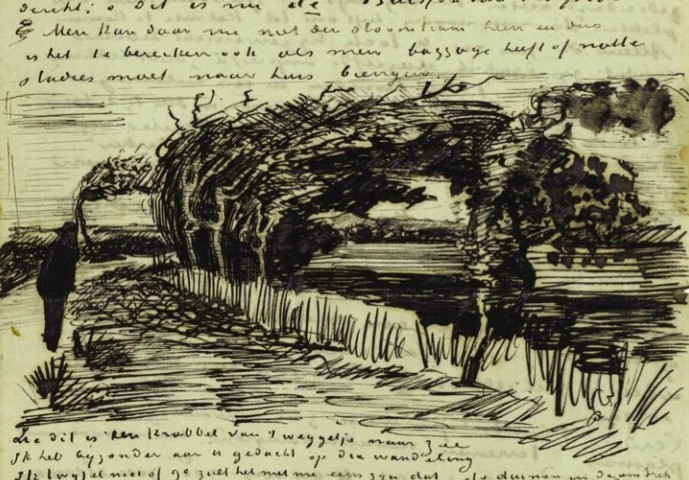 dit is nu de
Men kan daar nu met den stoomtram heen en dus
is het te bereiken ook als men baggage heeft of natte
studies moet naar huis brengen.
dit is een krabbel van 't weggetje naar zee
Ik heb byzonder aan u gedacht op die wandeling
Ik twyfel niet of ge zult het met me eens zyn dat de duinen in